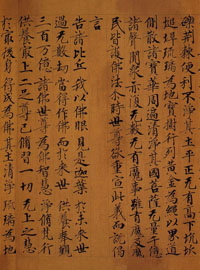 礫荊棘便利不淨其土平正无有高下坑坎
堆埠琉璃為地寶樹行列黃金為繩以界道
側散諸寶華周遍清淨其國菩薩无量千億
諸聲聞眾亦復无數无有魔事雖有魔及魔
民皆護佛法尒時世尊欲重宣此義而說偈
言
告諸比丘 我以佛眼 見是迦葉 於未來世
過无數劫 當得作佛 而於來世 供養奉覲
三百万億 諸佛世尊 為佛智慧 淨脩梵行
供養最上 二足尊已 脩習一切 无上之慧
於最後身 得成為佛 其土清淨 琉璃為地